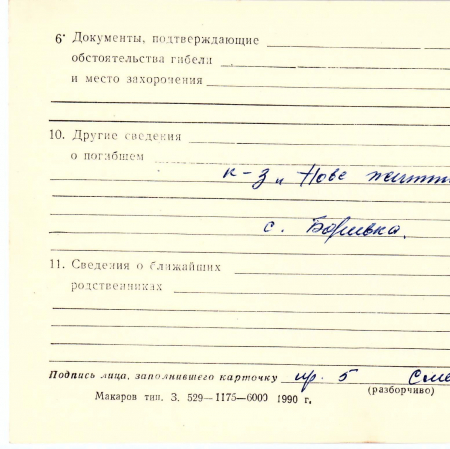 6· Документы, подтверждающие
обстоятельства гибели
и место захоронения
10. Другие сведения
о погибшем
к-з „ Нове
с.
11. Сведения о ближайших
родственниках
Подпись лица, заполнившего карточку пр. 5
(разборчиво)
Макаров тип. З. 529—1175—6000 1990 г.